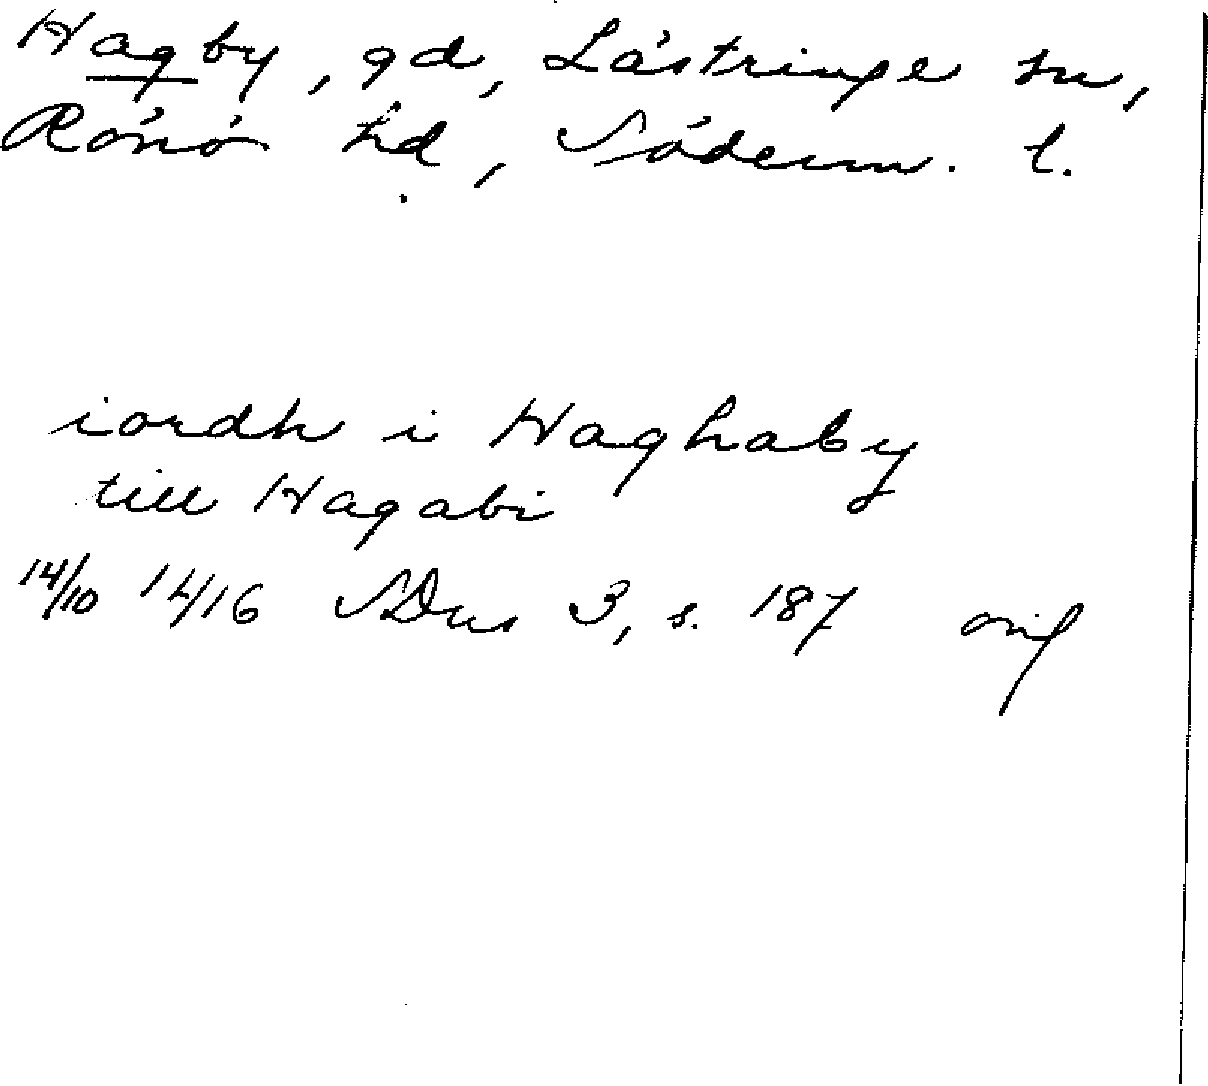 Hagby, gd, Lästringe sn,
Rönö hd, Söderm. l.
iordh i Haghaby
till Hagabi
14/10 1416 SDns 3, s. 187 orig